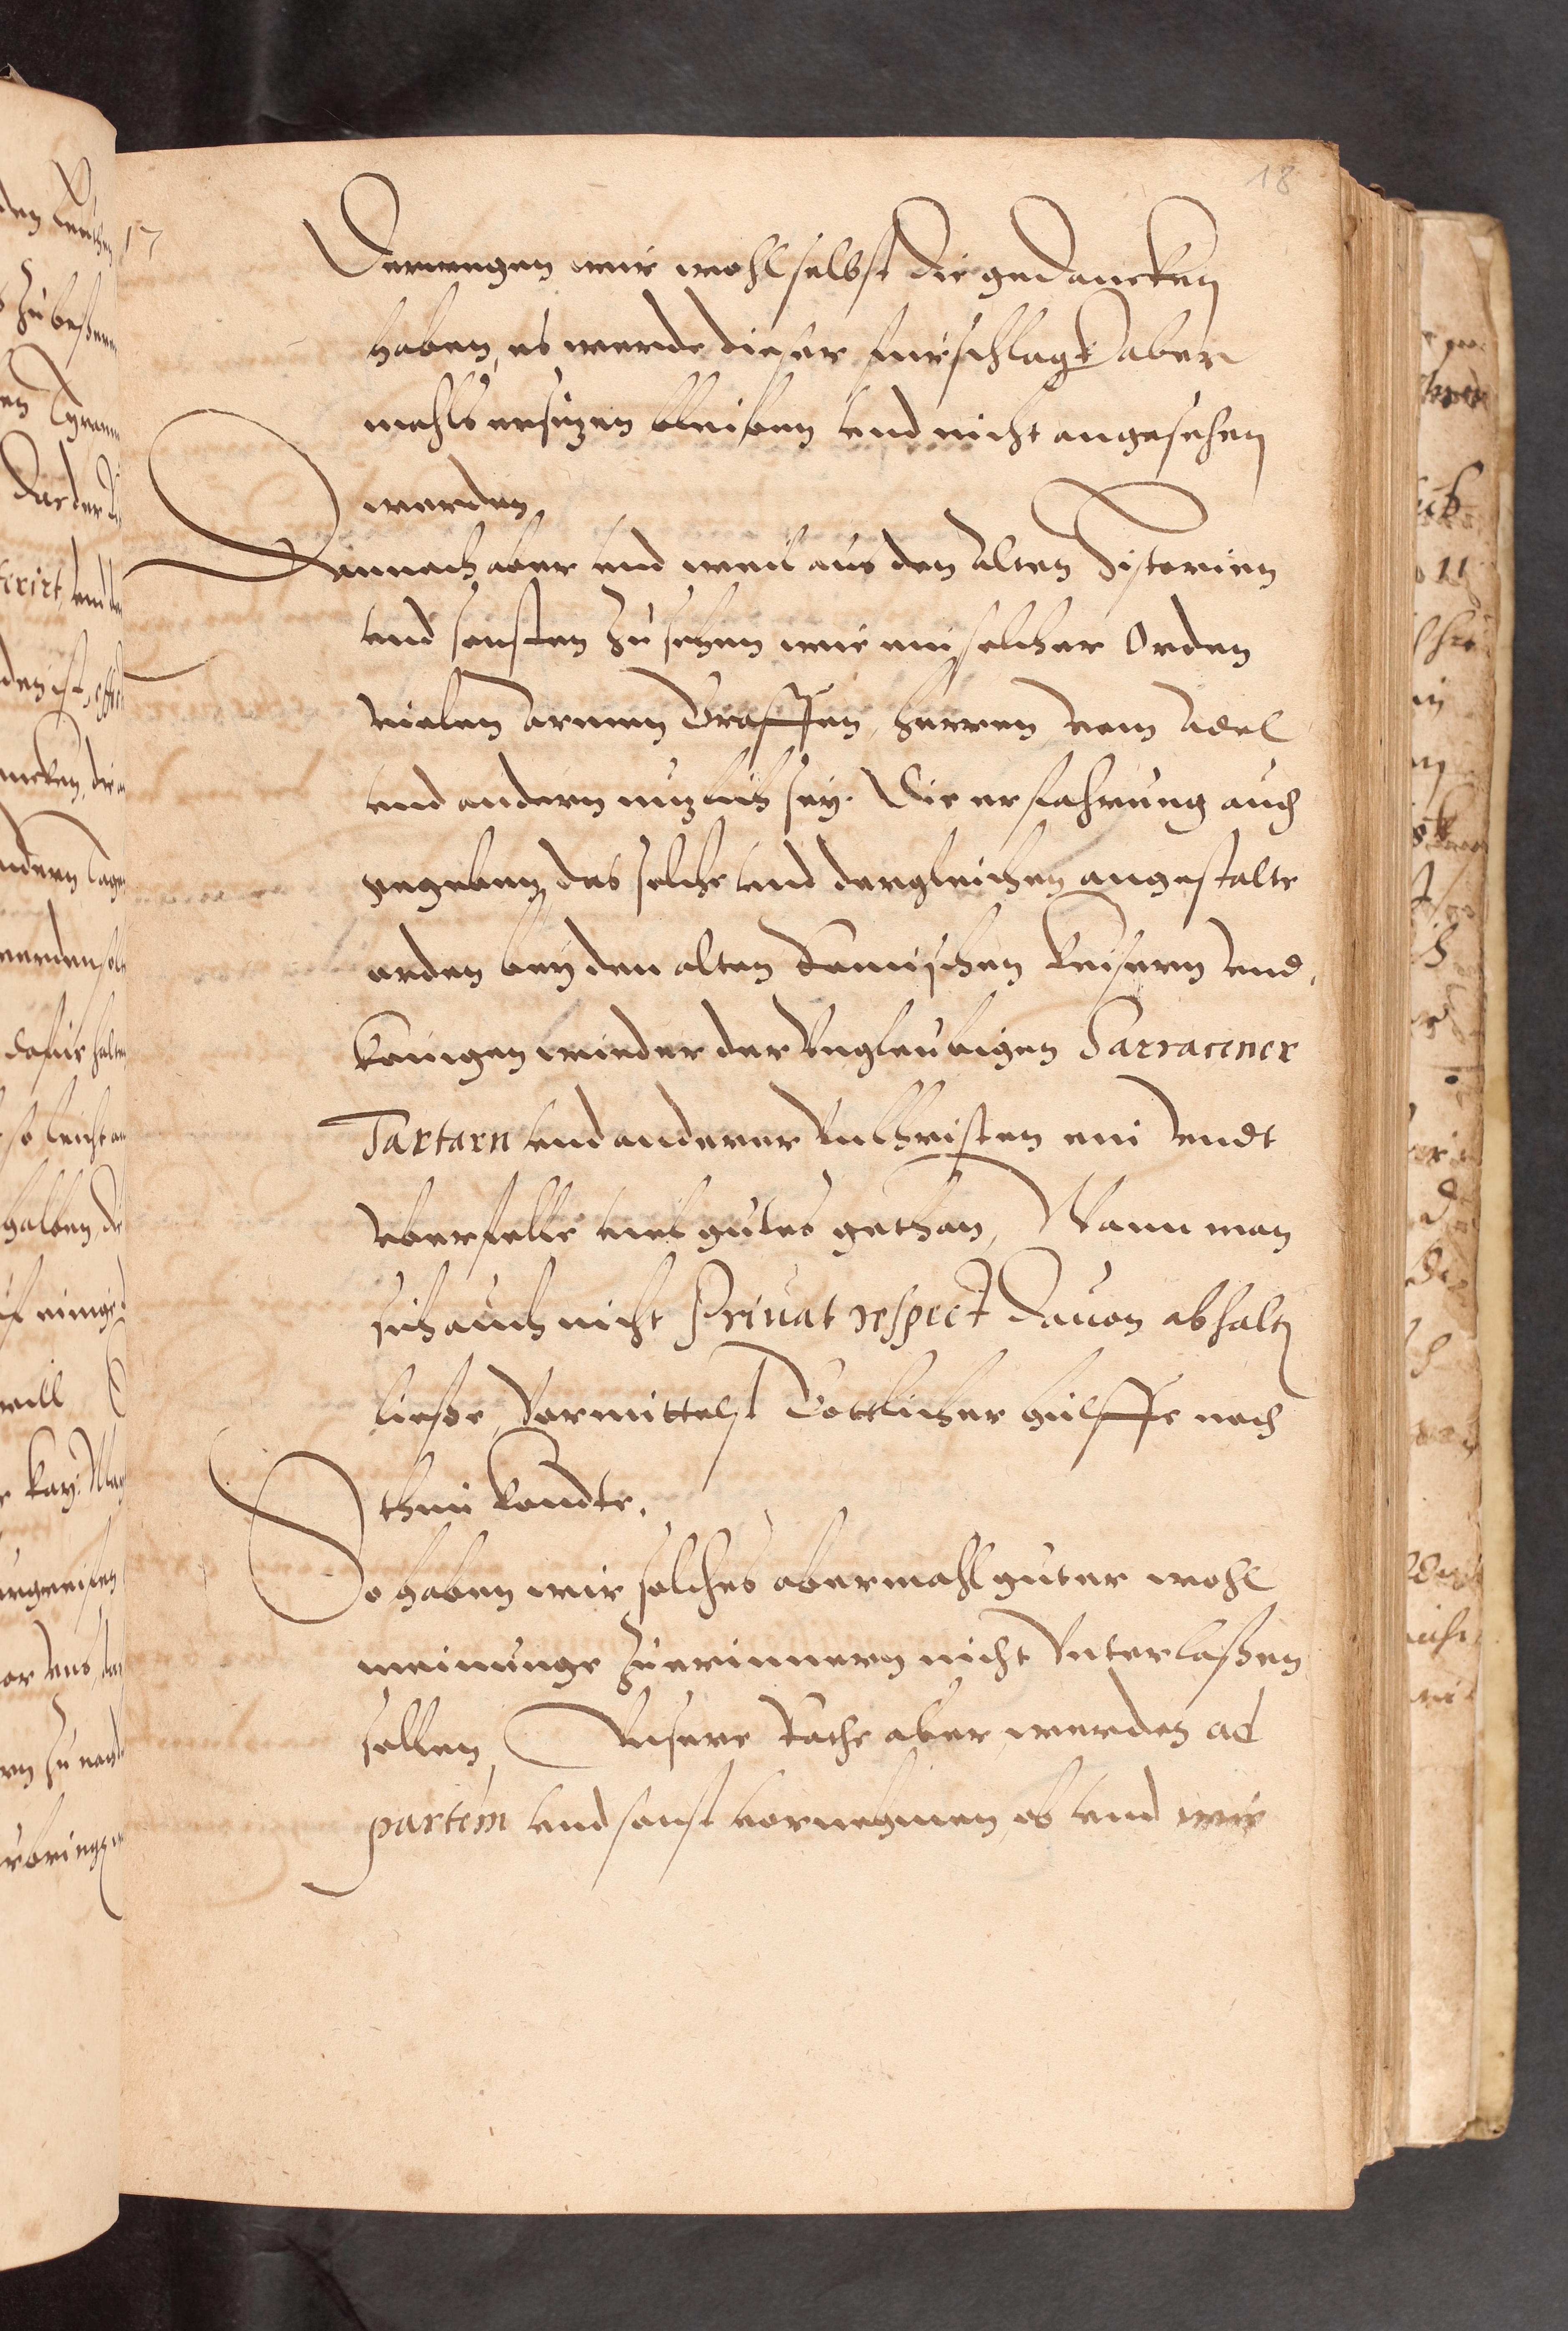 18
17
Derwegen wir wohl selbst die gedancken
haben, es werde dieser fürschlagk aber
mahls ersizen bleiben vnd nicht angesehen
werden,
Dannach aber vnd weil aus den alten Historien
vnd sonsten zu sehen wie ein solcher Orden
vielen armen Graffen, herren vom Adel
vnd andern nuzlich sey. Die erfahrung auch
gegeben, das solche vnd dergleichen angestalte
orden bey den alten Römischen Keisern vnd
Königen wieder der Vngleubigen Sarracener
Tartarn vnd anderer vnChristen ein vndt
vberfelle viel gutes gethan, Wann man
sich auch nicht Priuat respect dauon abhalten
liesse, Vermittelst Gottlicher hülffe noch
thun kondte.
So haben wir solches abermahl guter wohl
meinunge zuerinnern nicht Vnterlaßen
sollen, Vnsere Rathe aber werden ad
partem vnd sonst vornehmen, ob vnd wie